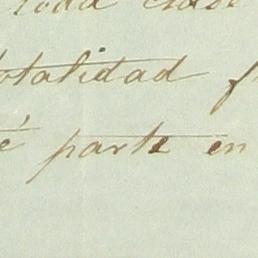 toda clase
totalidad f
é parte en